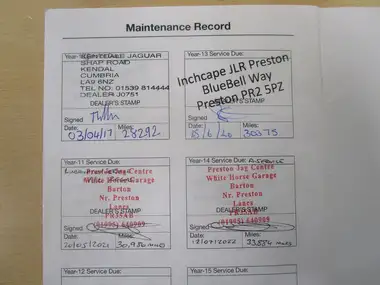 Maintenance Record
Year-10 Service Due:
JAGUAR
SHAP ROAD
KENDAL
CUMBRIA
LA9 6NZ
TEL NO: 01539 814444
DEALER J0751
DEALER'S STAMP
Signed
Date: Miles:
03/04/17 28292
Year-13 Service Due:
Inchcape JLR Preston
BlueBell Way
Preston PR2 5PZ
DEALER'S STAMP
Signed
Date: Miles:
30375
Year-11 Service Due:
Preston Jag Centre
White Horse Garage
Barton
Nr. Preston
Lancs
DEALER'S STAMP
Signed
Date: Miles:
20/05/2021 30,956 miles
Year-14 Service Due:
Preston Jag Centre
White Horse Garage
Barton
Nr. Preston
Lancs
DEALER'S STAMP
Signed
Date: Miles:
33554 miles
Year-12 Service Due:
Year-15 Service Due: